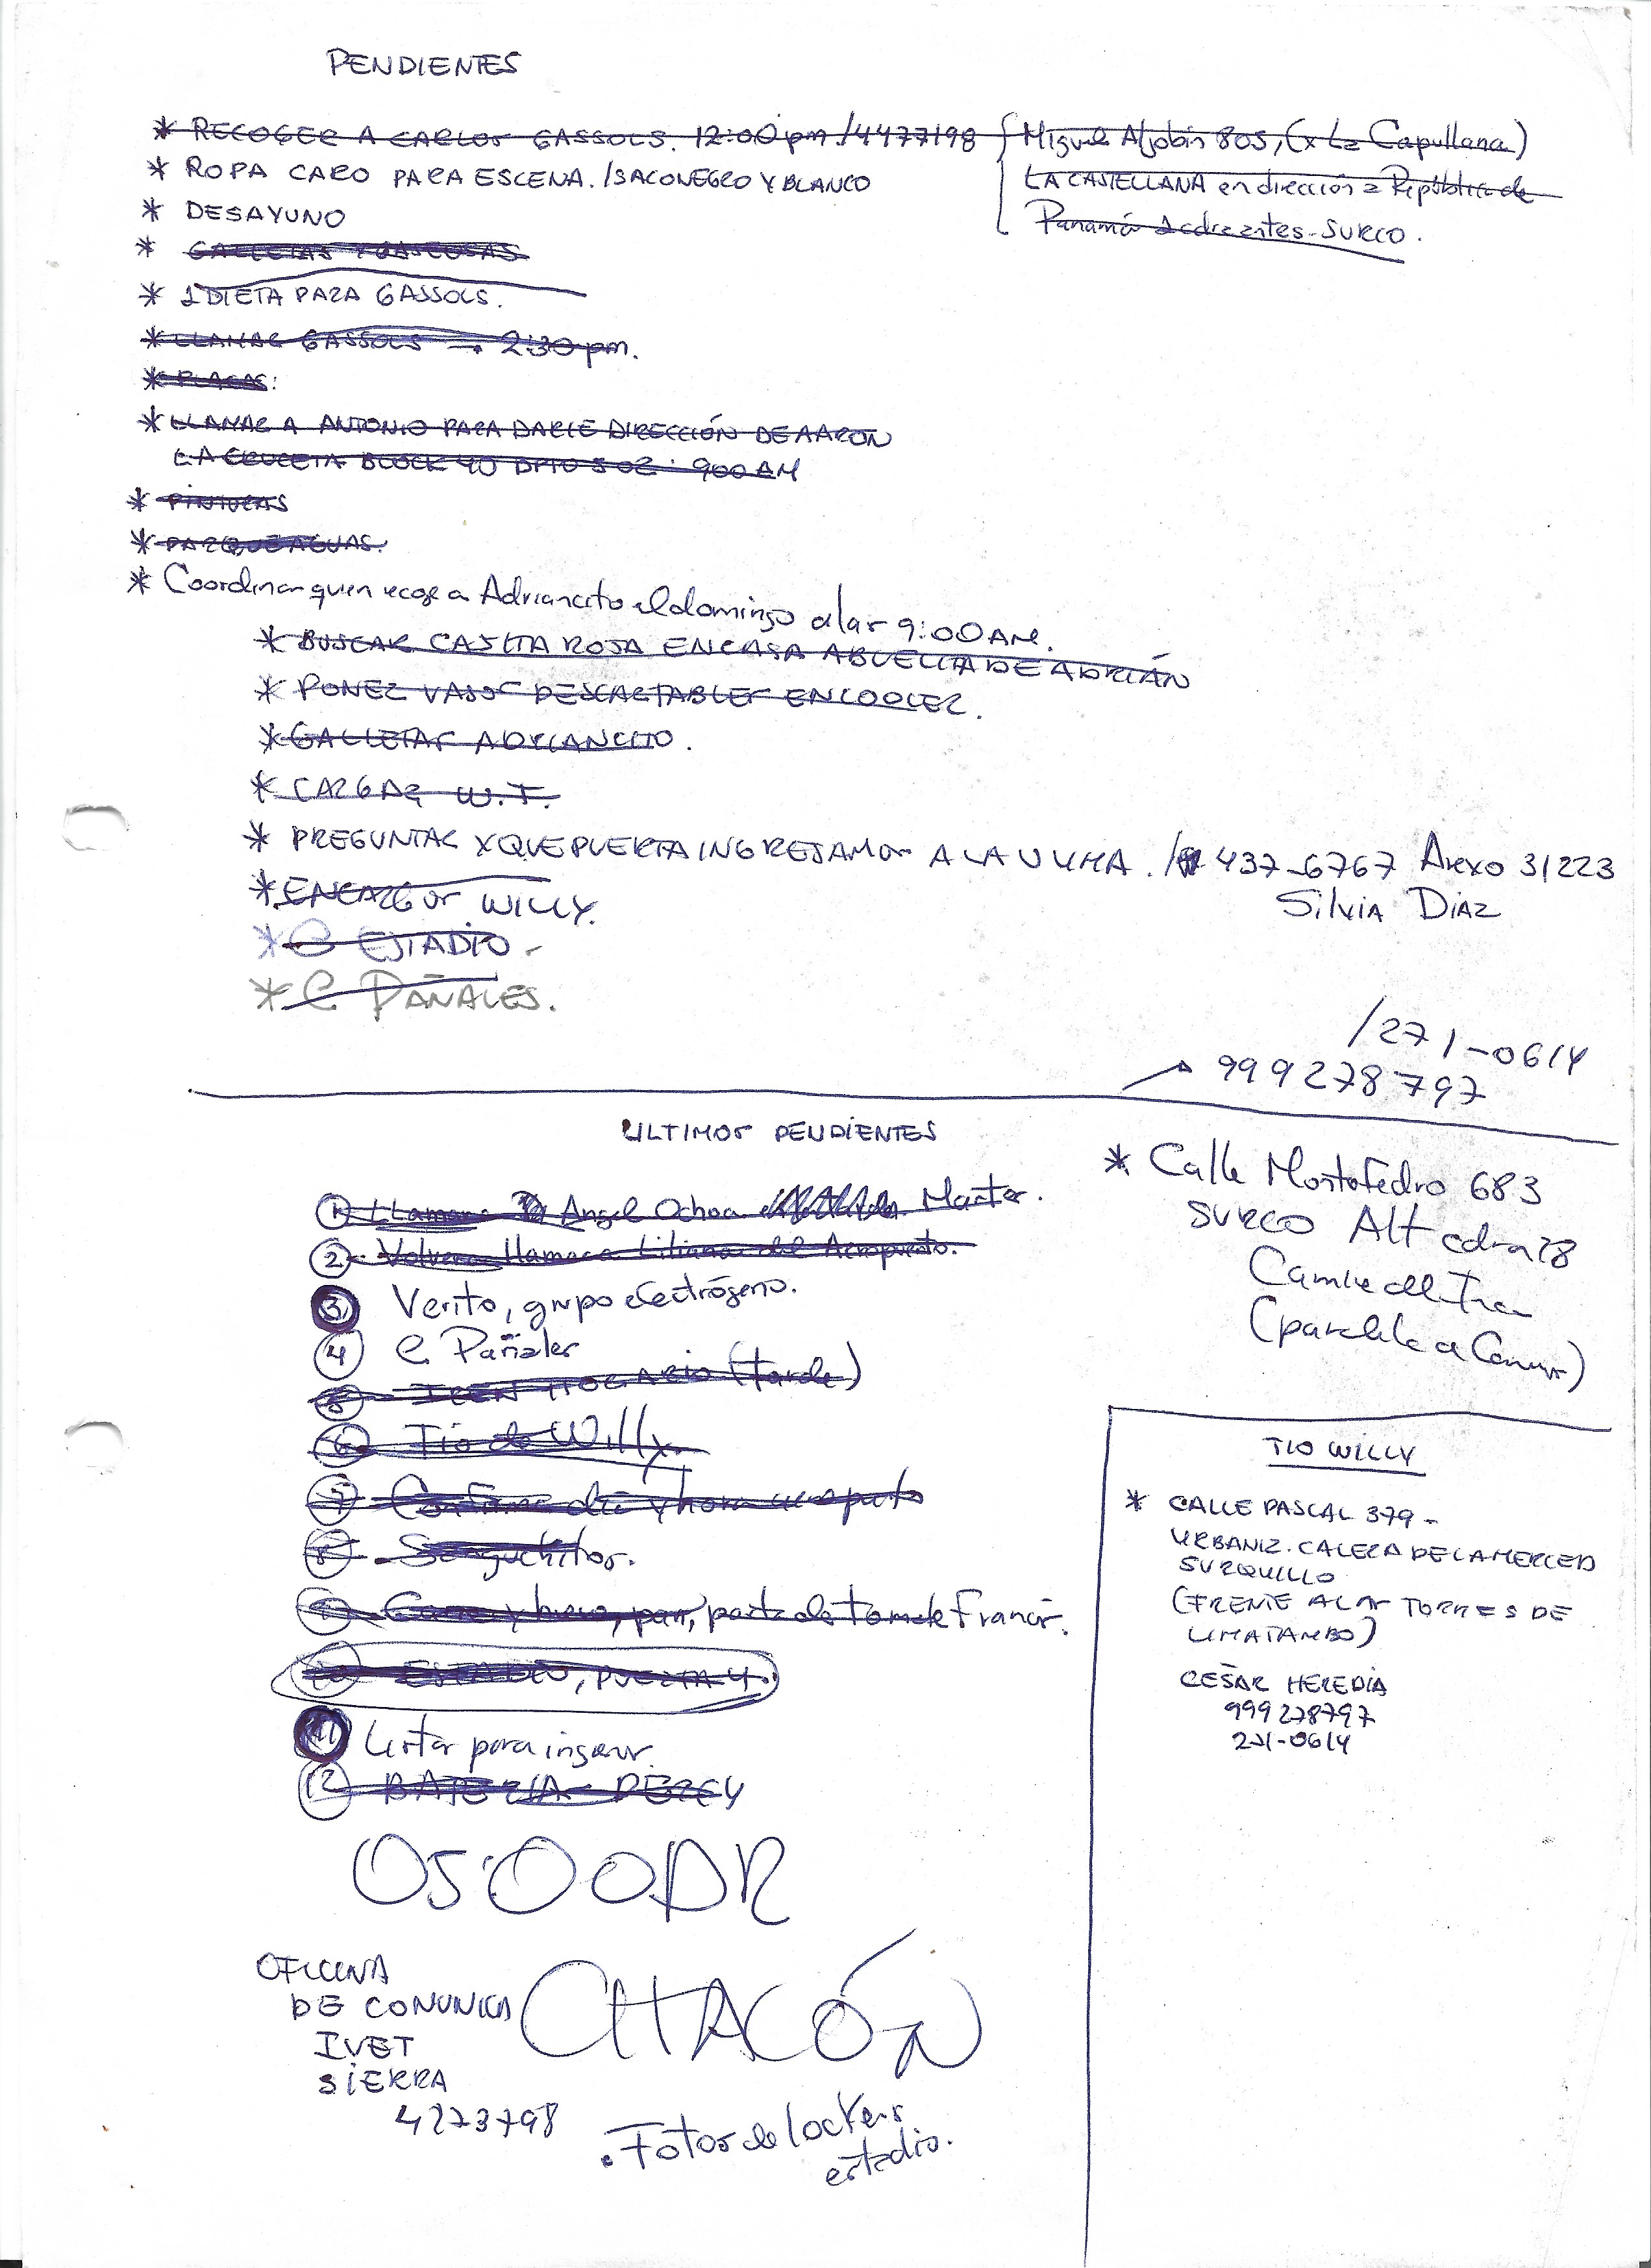 PENDIENTES
* RECOGER A CARLOS GASSOLS. 12:00 pm /4477198 { Miguel Aljobín 805, (x La Capullana)
* ROPA CARO PARA ESCENA. /SACO NEGRO Y BLANCO
LA CASTELLANA en dirección a República de
* DESAYUNO
Panamá 2 cdras antes - SURCO.
* GALLETAS Y GASEOSAS
* 1 DIETA PARA GASSOLS.
* LLAMAR GASSOLS → 2:30 pm.
* PLACAS:
* LLAMAR A ANTONIO PARA DARLE DIRECCIÓN DE AARON
LA CRUCETA BLOCK 40 DPTO 502: 900 AM
* PINTURAS
* PARQUE AGUAS.
* Coordinar quien recoge a Adriancito el domingo a las 9:00 AM.
* BUSCAR CAJITA ROJA EN CASA ABUELITA DE ADRIÁN
* PONER VASOS DESCARTABLES EN COOLER.
* GALLETAS ADRIANCITO.
* CARGAR W.T.
* PREGUNTAR X QUE PUERTA INGRESAMOS A LA VIDENA. / 437-6767 Anexo 31223
Silvia DIAZ
* ENCARGOS WILLY.
* C ESTADIO -
* C PAÑALES.
/271-0614
→ 999278797
ULTIMOS PENDIENTES
* Calle Montofedro 683
SURCO Alt cdra 28
(parelela a Conmar)
1 Llamar a Angel Ochoa Master.
2. Volver a llamar a Liliana del Aeropuerto.
3 Verito, grupo electrógeno.
4 C. Pañales
5 (tarde)
6 Tío de Willy.
7 Confirmar día y hora aeropuerto
8 Sanguchitos.
9 Carne y huevo, pan, pasta de tomate Francis.
10 ESTADIO, PUERTA 4.
11 Listas para ingresar.
12 BATERIA - PERCY
TIO WILLY
* CALLE PASCAL 379 -
URBANIZ. CALERA DE LA MERCED
SURQUILLO
(FRENTE A LAS TORRES DE
LIMATAMBO)
CESAR HEREDIA
999278797
271-0614
0500DR
OFICINA
DE COMUNICA
IVET
SIERRA
4273798
CHACÓN
. Fotos de lockers
estadio.